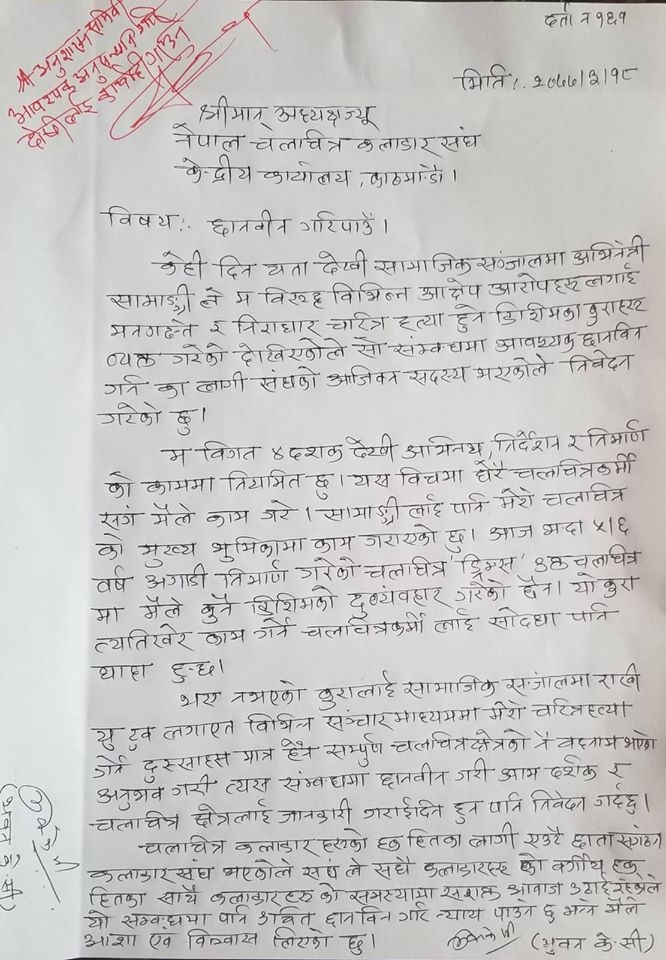 दर्ता न १६१
श्री अनुशासन समिति
आवश्यक अनुसन्धान गरि
दोषीलाई कार्वाही गर्नु
मिति:. २०७७/३/१८
श्रीमान् अध्यक्षज्यू
नेपाल चलचित्र कलाकार संघ
केन्द्रीय कार्यालय, काठमाण्डौ।
विषय:. छानवीन गरिपाउँ।
केही दिन यता देखी सामाजिक सञ्जालमा अभिनेत्री
साम्राज्ञी ले म विरुद्ध विभिन्न आक्षेप आरोपहरु लगाई
मनगढन्ते र निराधार चारित्र हत्या हुने किसिमका कुराहरु
व्यक्त गरेको देखिएकोले सो संम्वन्धमा आवश्यक छानविन
गर्न का लागी संघको आजिवन सदस्य भएकोले निवेदन
गरेको छु।
म विगत ४ दशक देखी अभिनय, निर्देशन र निर्माण
को काममा नियमित छु। यस विचमा धेरै चलचित्रकर्मी
सगं मैले काम गरे। साम्राज्ञी लाई पनि मेरो चलचित्र
को मुख्य भुमिकामा काम गराएको छु। आज भन्दा ५।६
वर्ष अगाडी निर्माण गरेको चलचित्र 'ड्रिम्स' उक्त चलचित्र
मा मैले कुनै किसिमको दुर्व्यवहार गरेको छैन। यो कुरा
त्यतिखेर काम गर्ने चलचित्रकर्मी लाई सोद्धा पनि
थाहा हुन्छ।
भए नभएको कुरालाई सामाजिक सञ्जालमा राखी
यु टुव लगाएत विभिन्न सञ्चारमाध्यममा मेरो चरित्रहत्या
गर्ने दुस्साहस मात्र हैन सम्पुर्ण चलचित्रक्षेत्रको नै वदनाम भएको
अनुभव गरी त्यस संम्वन्धमा छानवीन गरी आम दर्शक र
चलचित्र क्षेत्रलाई जानकारी गराईदिन हुन पनि निवेदन गर्दछु।
चलचित्र कलाकार हरुको हक हितका लागी एउटै छाता संगठन
कलाकार संघ भएकोले संघ ले सधै कलाकारहरु को वर्गीय हक
हितका साथै कलाकार हरु को समस्यामा सशक्त आवाज उठाई रहेकोले
यो सम्वन्धमा पनि उचित छानविन गरि न्याय पाउने छु भन्ने मैले
आशा एवं विश्वास लिएको छु।
(भुवन के.सी)
(भुवन के.सी)